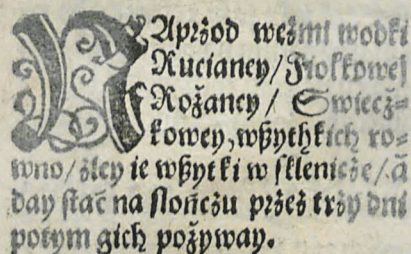 NAprzod weźmi wodki
Rucianey/ Fiołkowej
Rożaney/ Swiecż=
kowey, wßythkich ro=
wno/ źley ie wßytki w sklenicże/ á
day stać na słońcżu przez trzy dni
potym gich pożyway.